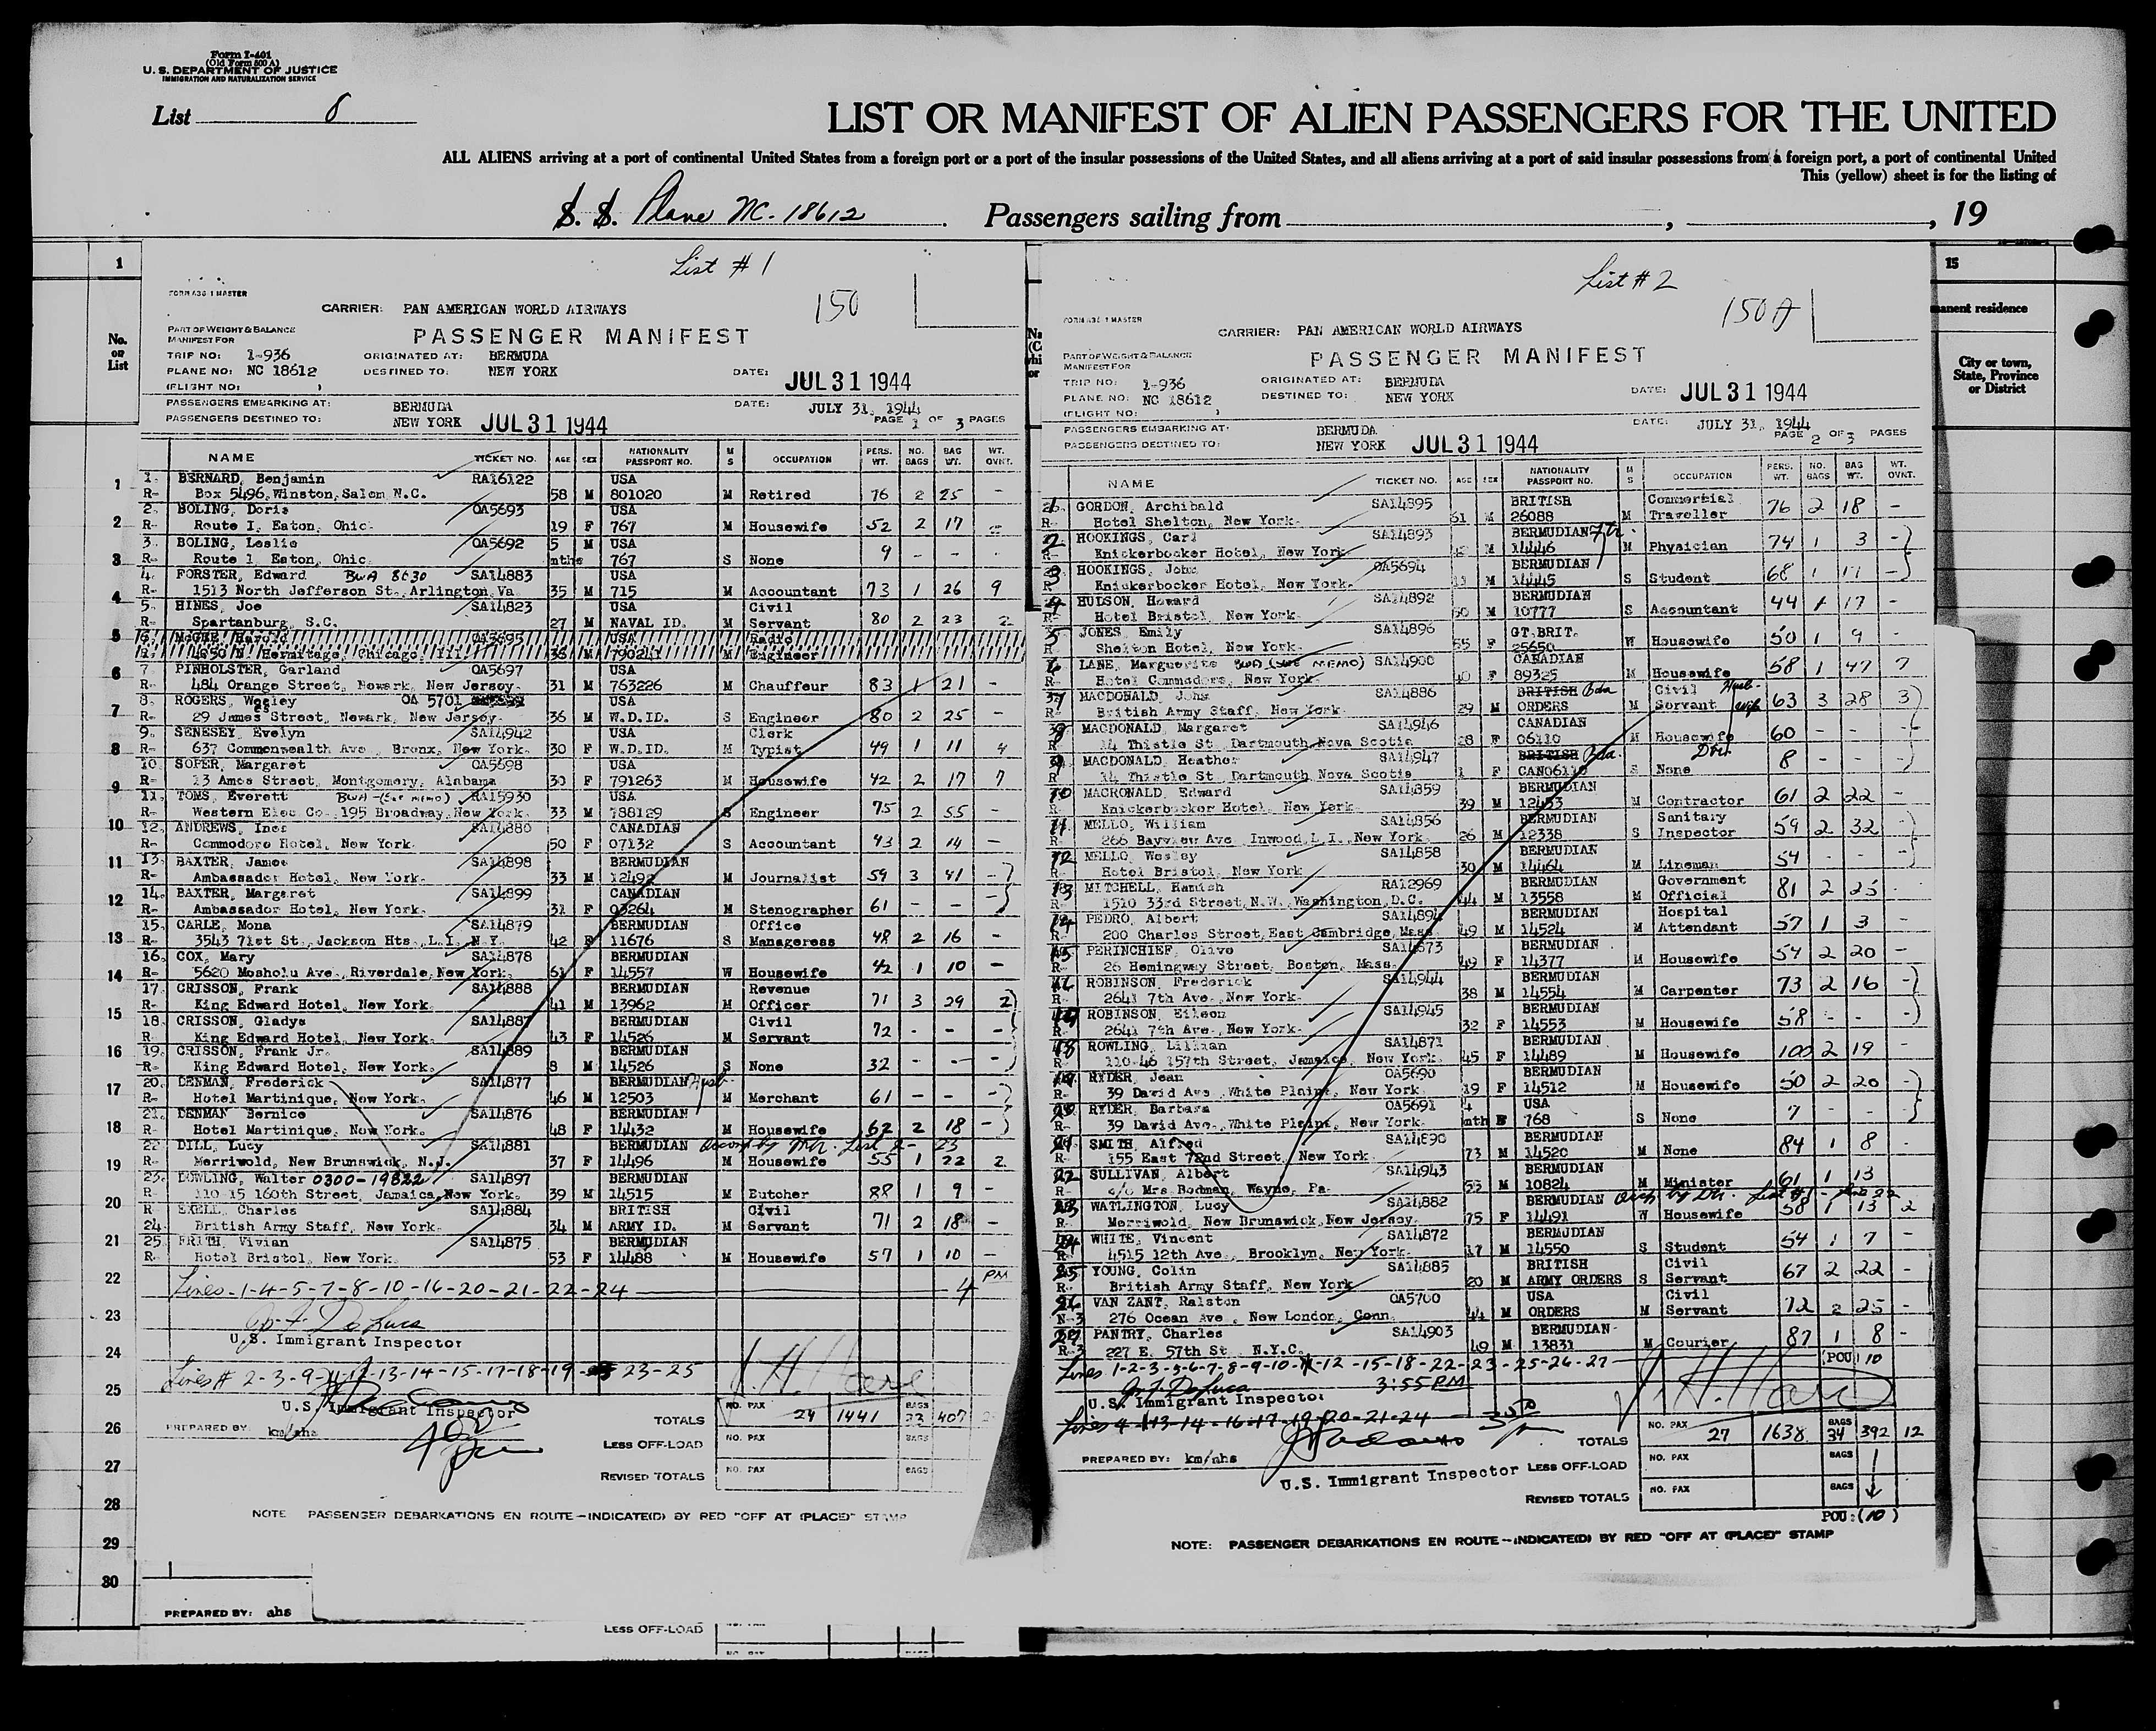 Form I-401
(Old Form 500 A)
U. S. DEPARTMENT OF JUSTICE
IMMIGRATION AND NATURALIZATION SERVICE
List
LIST OR MANIFEST OF ALIEN PASSENGERS FOR THE UNITED
ALL ALIENS arriving at a port of continental United States from a foreign port or a port of the insular possessions of the United States, and all aliens arriving at a port of said insular possessions from a foreign port, a port of continental United
This (yellow) sheet is for the listing of
S. S. Plane NC. 18612. Passengers sailing from , , 19
1
No. on List
List # 1
150
FORM 436-1 MASTER
CARRIER: PAN AMERICAN WORLD AIRWAYS
PART OF WEIGHT & BALANCE MANIFEST FOR
PASSENGER MANIFEST
TRIP NO: 1-936 ORIGINATED AT: BERMUDA
PLANE NO: NC 18612 DESTINED TO: NEW YORK DATE: JUL 31 1944
(FLIGHT NO: )
PASSENGERS EMBARKING AT: BERMUDA DATE: JULY 31, 1944
PASSENGERS DESTINED TO: NEW YORK JUL 31 1944 PAGE 1 OF 3 PAGES
NAME TICKET NO. AGE SEX NATIONALITY PASSPORT NO. M S OCCUPATION PERS. WT. NO. BAGS BAG WT. WT. OVNT.
1. BERNARD, Benjamin RA16122 USA
R- Box 5496, Winston, Salem N.C. 58 M 801020 M Retired 76 2 25 -
2. BOLING, Doris OA5693 USA
R- Route I, Eaton, Ohio. 19 F 767 M Housewife 52 2 17 -
3. BOLING, Leslie OA5692 5 M USA
R- Route 1 Eaton, Ohio. mths 767 S None 9 - - -
4. FORSTER, Edward BWA 8630 SA14883 USA
R- 1513 North Jefferson St., Arlington, Va. 35 M 715 M Accountant 73 1 26 9
5. HINES, Joe SA14823 USA Civil
R- Spartanburg, S.C. 27 M NAVAL ID. M Servant 80 2 23 2
6. McGEE, Harold OA5695 USA Radio
R- 4650 N. Hermitage, Chicago, Ill. 36 M 790241 M Engineer
7. PINHOLSTER, Garland OA5697 USA
R- 484 Orange Street, Newark, New Jersey. 31 M 763226 M Chauffeur 83 1 21 -
8. ROGERS, Wesley OA 5701 USA
R- 29 James Street, Newark, New Jersey. 36 M W.D.ID. S Engineer 80 2 25 -
9. SENESEY, Evelyn SA14942 USA Clerk
R- 637 Commonwealth Ave., Bronx, New York. 30 F W.D.ID. M Typist 49 1 11 4
10. SOPER, Margaret OA5698 USA
R- 13 Amos Street, Montgomery, Alabama 30 F 791263 M Housewife 42 2 17 7
11. TOMS, Everett BWA-(See memo) RA15930 USA
R- Western Elec Co., 195 Broadway, New York. 33 M 788129 S Engineer 75 2 55 -
12. ANDREWS, Inez SA14880 CANADIAN
R- Commodore Hotel, New York. 50 F 07132 S Accountant 43 2 14 -
13. BAXTER, James SA14898 BERMUDIAN
R- Ambassador Hotel, New York. 33 M 12492 M Journalist 59 3 41 -
14. BAXTER, Margaret SA14899 CANADIAN
R- Ambassador Hotel, New York. 31 F 03264 M Stenographer 61 - - -
15. CARLE, Mona SA14879 BERMUDIAN Office
R- 3543 71st St., Jackson Hts., L.I., N.Y. 42 F 11676 S Manageress 48 2 16 -
16. COX, Mary SA14878 BERMUDIAN
R- 5620 Mosholu Ave., Riverdale, New York. 61 F 14557 W Housewife 42 1 10 -
17. CRISSON, Frank SA14888 BERMUDIAN Revenue
R- King Edward Hotel, New York. 41 M 13962 M Officer 71 3 29 2
18. CRISSON, Gladys SA14887 BERMUDIAN Civil
R. King Edward Hotel, New York. 43 F 14526 M Servant 72 - - -
19. CRISSON, Frank Jr. SA14889 BERMUDIAN
R- King Edward Hotel, New York. 8 M 14526 S None 32 - - -
20. DENMAN, Frederick SA14877 BERMUDIAN Husb.
R- Hotel Martinique, New York. 46 M 12503 M Merchant 61 - - -
21. DENMAN Bernice SA14876 BERMUDIAN
R- Hotel Martinique, New York. 48 F 14432 M Housewife 62 2 18 -
22 DILL, Lucy SA14881 BERMUDIAN accomp by Mo. List 2 - 23
R- Merriwold, New Brunswick, N.J. 37 F 14496 M Housewife 55 1 22 2
23. DOWLING, Walter 0300-19822 SA14897 BERMUDIAN
R- 110-15 160th Street, Jamaica, New York. 39 M 14515 M Butcher 88 1 9 -
R EXELL, Charles SA14884 BRITISH Civil
24. British Army Staff, New York. 34 M ARMY ID. M Servant 71 2 18 -
25. FRITH, Vivian SA14875 BERMUDIAN
R- Hotel Bristol, New York. 53 F 14488 M Housewife 57 1 10 -
Lines - 1-4-5-7-8-10-16-20-21-22-24 4 PM
Jos. F. De Luca
U.S. Immigrant Inspector
Lines # 2-3-9-11-12-13-14-15-17-18-19- 23-25
U.S. Immigrant Inspector
PREPARED BY: km/ahs
TOTALS NO. PAX 24 1441 BAGS 33 407
LESS OFF-LOAD NO. PAX BAGS
REVISED TOTALS NO. PAX BAGS
NOTE PASSENGER DEBARKATIONS EN ROUTE—INDICATE(D) BY RED "OFF AT (PLACE)" STAMP
PREPARED BY: ahs
LESS OFF-LOAD
1
2
3
4
5
6
7
8
9
10
11
12
13
14
15
16
17
18
19
20
21
22
23
24
25
26
27
28
29
30
List # 2
150A
FORM 436-1 MASTER
CARRIER: PAN AMERICAN WORLD AIRWAYS
PART OF WEIGHT & BALANCE MANIFEST FOR
PASSENGER MANIFEST
TRIP NO: 1-936 ORIGINATED AT: BERMUDA
PLANE NO: NC 18612 DESTINED TO: NEW YORK DATE: JUL 31 1944
(FLIGHT NO: )
PASSENGERS EMBARKING AT: BERMUDA DATE: JULY 31, 1944
PASSENGERS DESTINED TO: NEW YORK JUL 31 1944 PAGE 2 OF 3 PAGES
NAME TICKET NO. AGE SEX NATIONALITY PASSPORT NO. M S OCCUPATION PERS. WT. NO. BAGS BAG WT. WT. OVNT.
1 GORDON, Archibald SA14895 BRITISH Commercial
R- Hotel Shelton, New York. 61 M 26088 M Traveller 76 2 18 -
2 HOOKINGS, Carl SA14893 BERMUDIAN
R- Knickerbocker Hotel, New York M 14446 M Physician 74 1 3 -
3 HOOKINGS, John OA5694 BERMUDIAN
R- Knickerbocker Hotel, New York. M 14445 S Student 68 1 17 -
4 HUDSON, Howard SA14892 BERMUDIAN
R- Hotel Bristol, New York. 50 M 10777 S Accountant 44 1 17 -
5 JONES, Emily SA14896 GT. BRIT.
R- Shelton Hotel, New York. 55 F 25650 W Housewife 50 1 9 -
6 LANE, Marguerite BWA (SEE MEMO) SA14900 CANADIAN
R- Hotel Commodore, New York. 40 F 89325 M Housewife 58 1 47 7
7 MACDONALD, John SA14886 BRITISH Bda Civil Husb.
R- British Army Staff, New York. 29 M ORDERS M Servant Wife 63 3 28 3
8 MACDONALD, Margaret SA14946 CANADIAN
R 14 Thistle St Dartmouth, Nova Scotia 28 F 06110 M Housewife 60 - - -
9 MACDONALD, Heather SA14947 BRITISH Bda. Dtr
R 14 Thistle St Dartmouth, Nova Scotia 1 F CAN06110 S None 8 - - -
10 MACRONALD, Edward SA14859 BERMUDIAN
R- Knickerbocker Hotel, New York. 39 M 12453 M Contractor 61 2 22 -
11 MELLO, William SA14856 BERMUDIAN Sanitary
R- 266 Bayview Ave Inwood, L.I. New York. 26 M 12338 S Inspector 59 2 32 -
12 MELLO, Wesley SA14858 BERMUDIAN
R- Hotel Bristol, New York 30 M 14464 M Lineman 54 - - -
13 MITCHELL, Hamish RA12969 BERMUDIAN Government
R- 1510 33rd Street, N.W. Washington, D.C. 44 M 13558 M Official 81 2 25 -
14 PEDRO, Albert SA14894 BERMUDIAN Hospital
R- 200 Charles Street, East Cambridge, Mass. 49 M 14524 M Attendant 57 1 3 -
15 PERINCHIEF, Olive SA14873 BERMUDIAN
R- 26 Hemingway Street, Boston, Mass. 49 F 14377 M Housewife 54 2 20 -
16 ROBINSON, Frederick SA14944 BERMUDIAN
R- 2641 7th Ave., New York. 38 M 14554 M Carpenter 73 2 16 -
17 ROBINSON, Eileen SA14945 BERMUDIAN
R- 2641 7th Ave., New York. 32 F 14553 M Housewife 58 - - -
18 ROWLING, Lillian SA14871 BERMUDIAN
R- 110-46 157th Street, Jamaica, New York. 45 F 14489 M Housewife 100 2 19 -
19 RYDER, Jean OA5690 BERMUDIAN
R- 39 David Ave., White Plains, New York. 19 F 14512 M Housewife 50 2 20 -
20 RYDER, Barbara OA5691 4 USA
R- 39 David Ave., White Plains, New York. mth F 768 S None 7 - - -
21 SMITH Alfred SA14890 BERMUDIAN
R- 155 East 72nd Street, New York 73 M 14520 M None 84 1 8 -
22 SULLIVAN, Albert SA14943 BERMUDIAN
R- c/o Mrs Rodman, Wayne, Pa. 53 M 10824 M Minister 61 1 13
23 WATLINGTON, Lucy SA14882 BERMUDIAN
R Merriwold, New Brunswick, New Jersey. 75 F 14491 W Housewife 58 1 13 2
24 WHITE, Vincent SA14872 BERMUDIAN
R- 4515 12th Ave., Brooklyn, New York. 17 M 14550 S Student 54 1 7 -
25 YOUNG, Colin SA14885 BRITISH Civil
R- British Army Staff, New York 20 M ARMY ORDERS S Servant 67 2 22 -
26 VAN ZANT, Ralston OA5700 USA Civil
N-3 276 Ocean Ave., New London, Conn. 44 M ORDERS M Servant 72 2 25 -
27 PANTRY, Charles SA14903 BERMUDIAN
R-3 227 E. 57th St., N.Y.C. 49 M 13831 M Courier 87 1 8 -
(POU) 10
Lines 1-2-3-5-6-7-8-9-10-11-12-15-18-22-23-25-26-27
Jos. F. De Luca 3:55 PM
U.S. Immigrant Inspector
Lines 4-13-14-16-17-19-20-21-24
PREPARED BY: km/ahs
U.S. Immigrant Inspector
TOTALS NO. PAX 27 1638 BAGS 34 392 12
LESS OFF-LOAD NO. PAX BAGS
REVISED TOTALS NO. PAX BAGS
POU: (10)
NOTE: PASSENGER DEBARKATIONS EN ROUTE—INDICATE(D) BY RED "OFF AT (PLACE)" STAMP
15
manent residence
City or town, State, Province or District